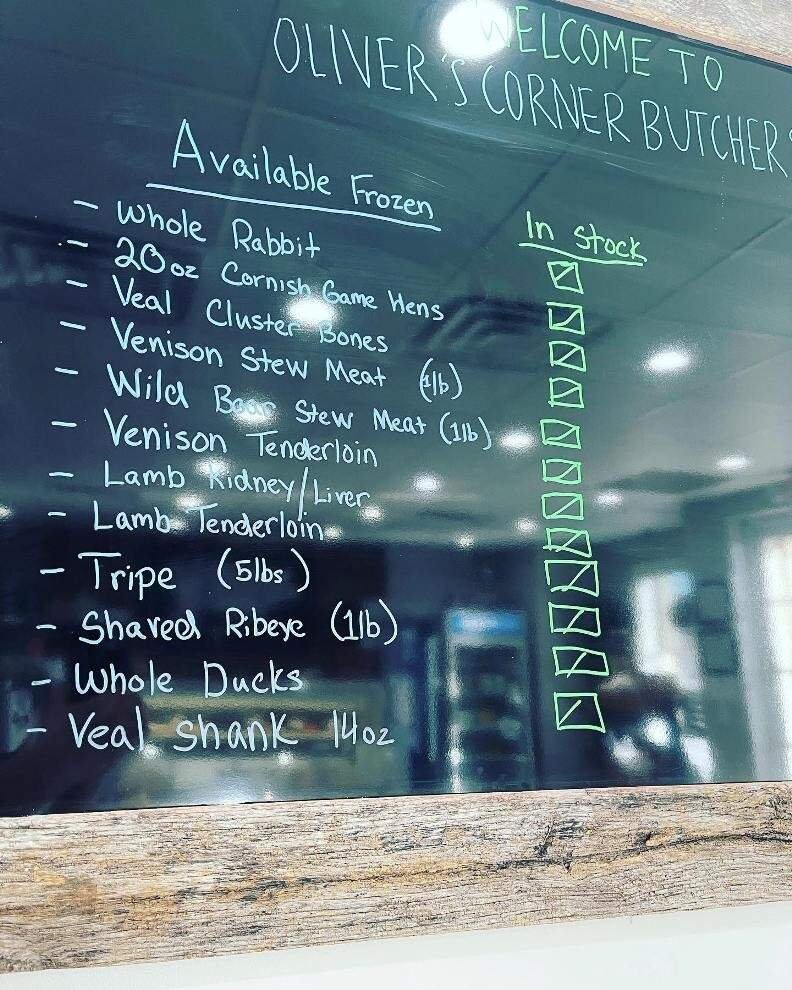 WELCOME TO
OLIVER'S CORNER BUTCHER
Available Frozen
In Stock
- Whole Rabbit
- 20oz Cornish Game Hens
- Veal Cluster Bones
- Venison Stew Meat (1lb)
- Wild Boar Stew Meat (1lb)
- Venison Tenderloin
- Lamb Kidney/Liver
- Lamb Tenderloin
- Tripe (5lbs)
- Shaved Ribeye (1lb)
- Whole Ducks
- Veal Shank 14oz